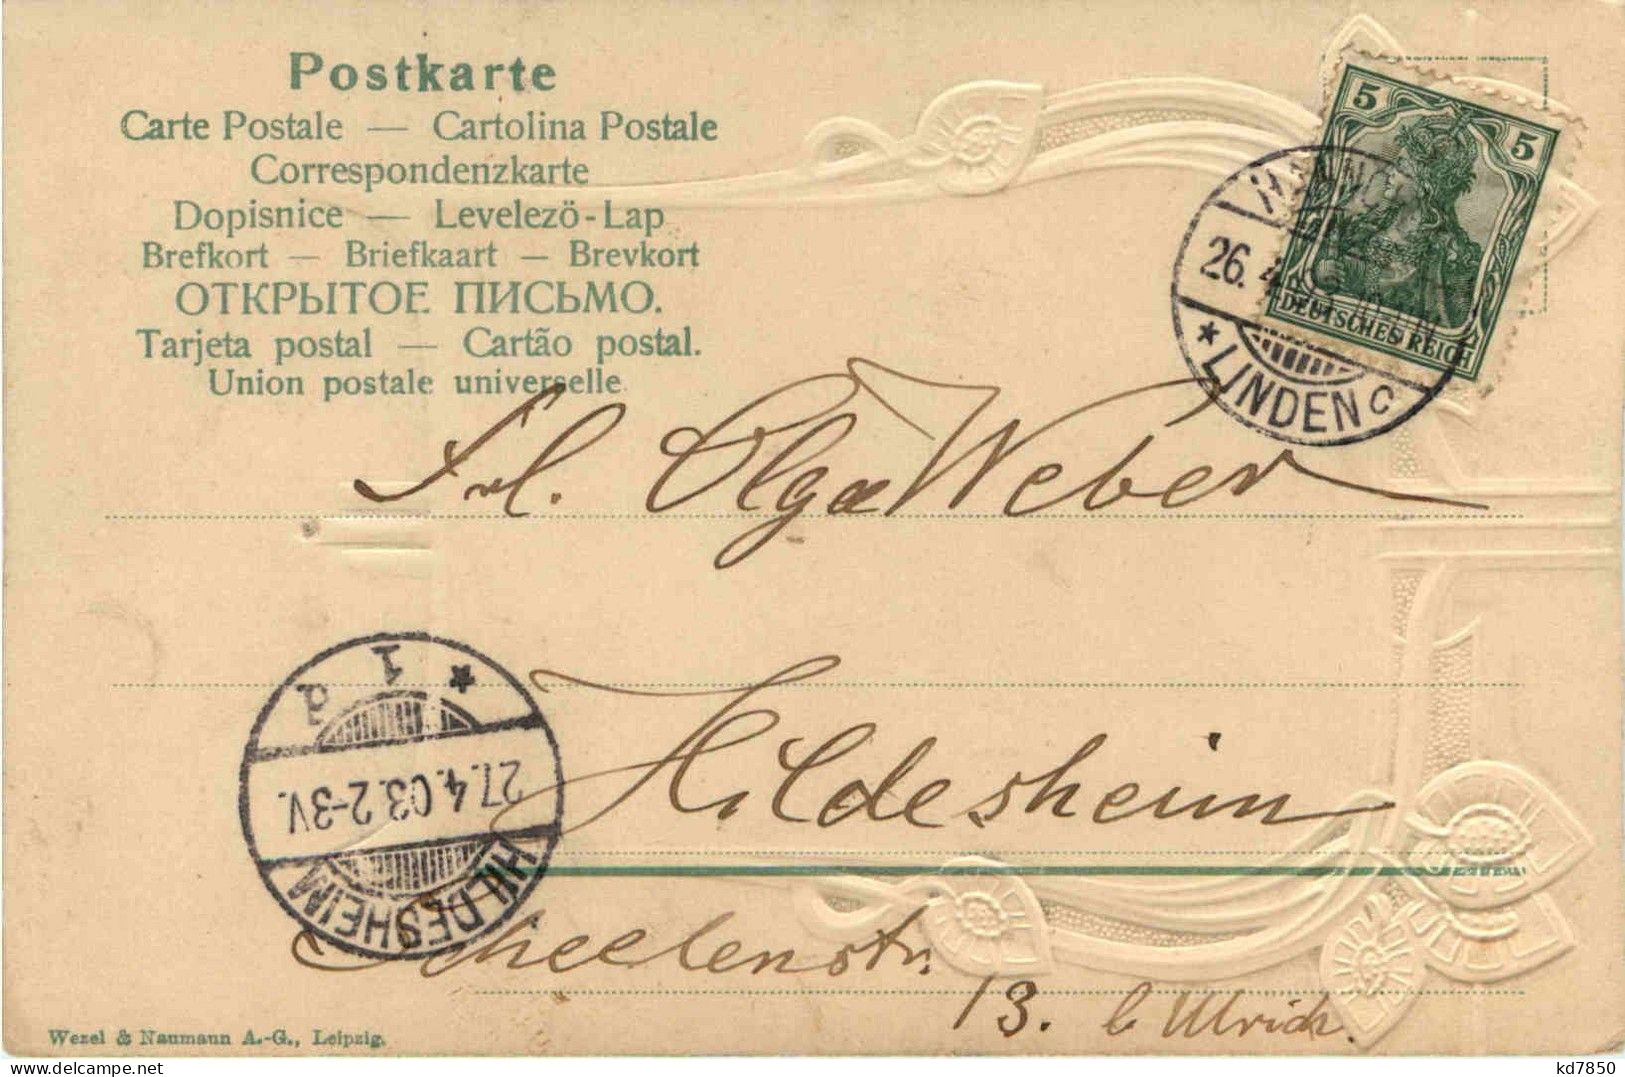 Postkarte
Carte Postale — Cartolina Postale
Correspondenzkarte
Dopisnice — Levelező-Lap
Brefkort — Briefkaart — Brevkort
ОТКРЫТОЕ ПИСЬМО.
Tarjeta postal — Cartão postal.
Union postale universelle
5 5
DEUTSCHES REICH
26. 4.
* LINDEN C
Frl. Olga Weber
* 1 d
27.4.03.2-3V.
HILDESHEIM
Hildesheim
Scheelenstr.
13. b. Ulrich.
Wezel & Naumann A.-G., Leipzig.
kd7850